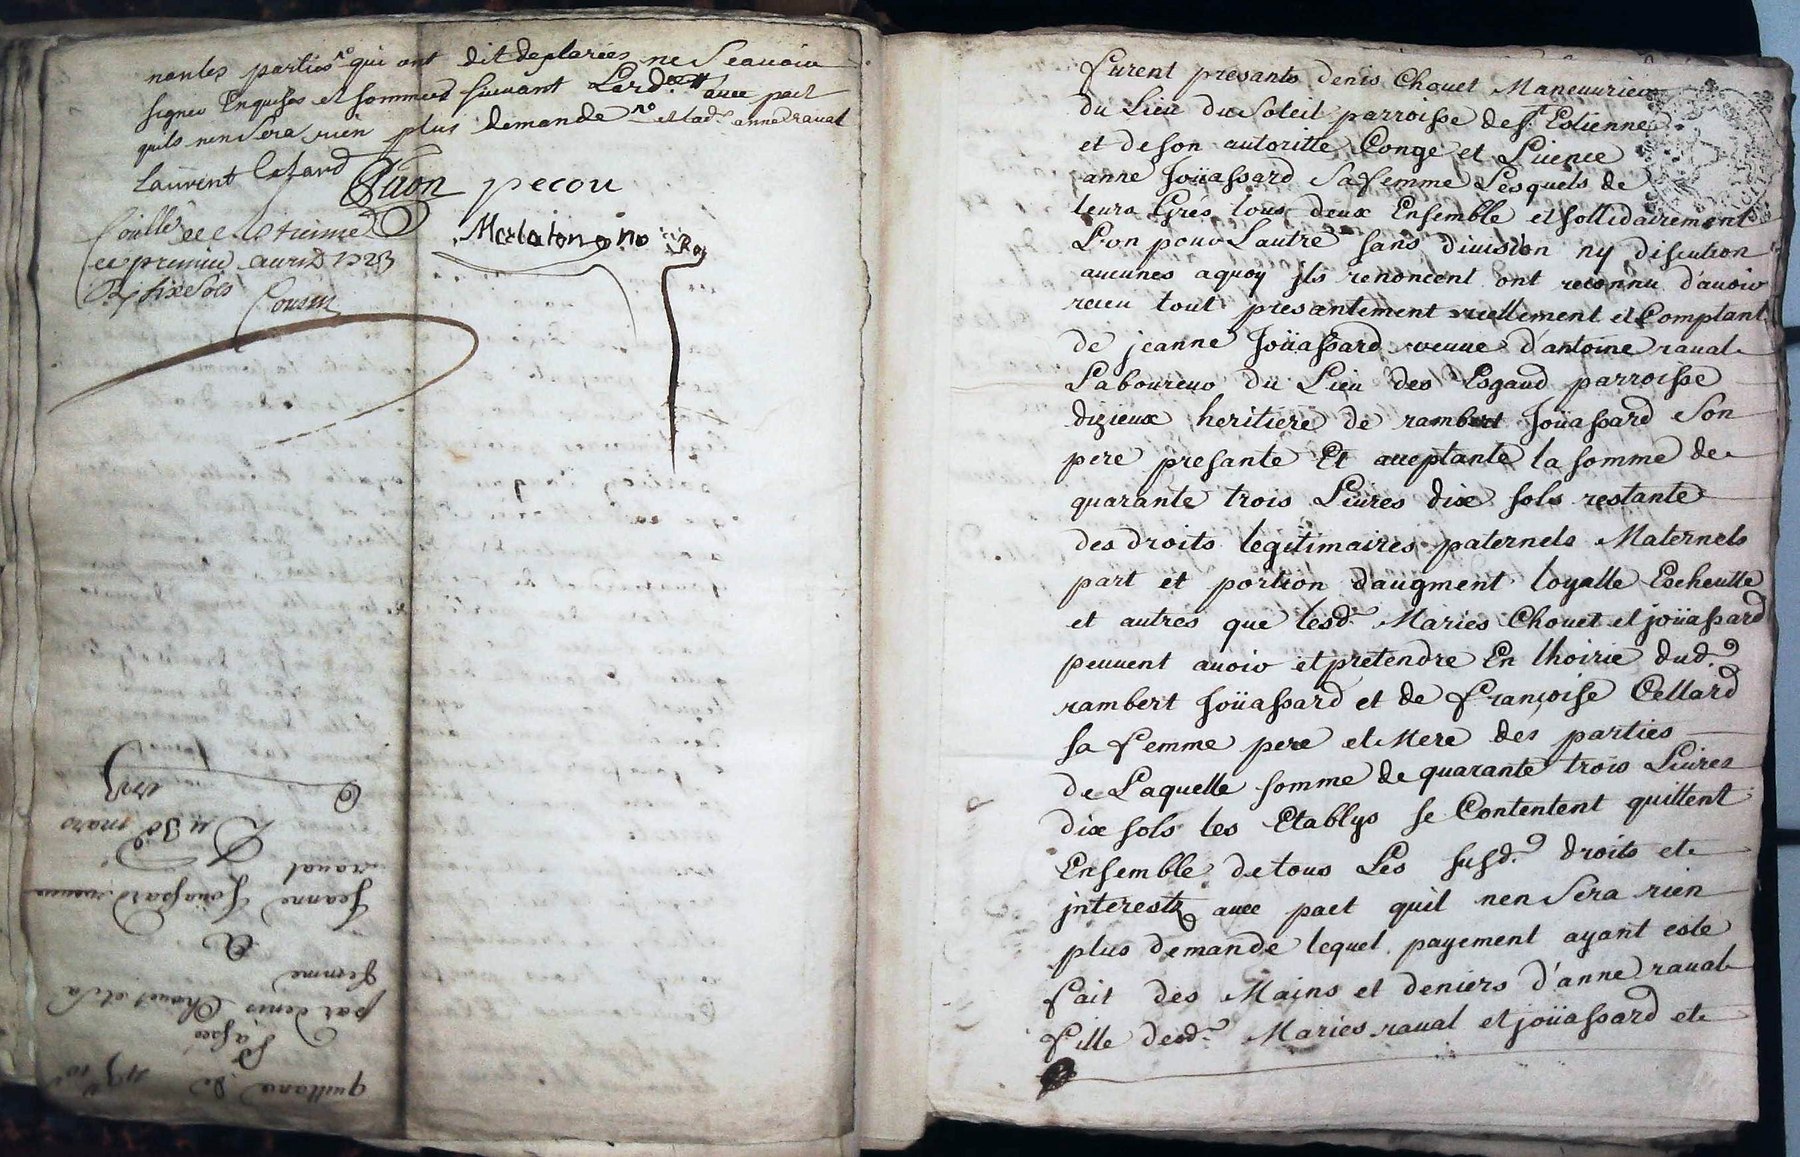 non les parties qui ont dit desclarées ne scauoir
signer Enquises et sommées suiuant Lord.ce auec pact
quils nen sera rien plus demande et lad. anne raual
Laurent
pecou
Merlatongno Roy
Coullé
ce premier auril 1723
Rx six sols
Cousin
quittance de
43# 10s
Passée
par denis Chouet et sa
femme
A
Jeanne Joüassard veuue
raual
Du 30 mars
1723
furent presants denis Chouet Maneuurier
du Lieu du Soleil parroisse de St. Estienne
et de son autoritte Conge et Lisence
anne Joüassard sa femme Lesquels de
leurs Grés tous deux Ensemble et sollidairement
L'un pour L'autre sans diuision ny discution
aucunes aquoy jls renoncent ont reconnu d'auoir
receu tout presantement reellement et Comptant
de jeanne Joüassard veuue d'antoine raual
Laboureur du Lieu des Esgaud parroisse
dizieux heritiere de rambert Joüassard Son
pere presante Et acceptante la somme de
quarante trois Liures dix sols restante
des droits legitimaires paternels Maternels
part et portion d'augment loyalle Escheutte
et autres que lesd. Mariés Chouet et joüassard
peuuent auoir et pretendre En lhoirie dud.
rambert Joüassard et de françoise Cellard
sa femme pere et Mere des parties
de Laquelle somme de quarante trois Liures
dix sols les Etablys se Contentent quittent
Ensemble de tous Les susd. droits et
jnterests auec pact quil nen sera rien
plus demande lequel payement ayant este
fait des Mains et deniers d'anne raual
fille desd. Maries raual et joüassard et